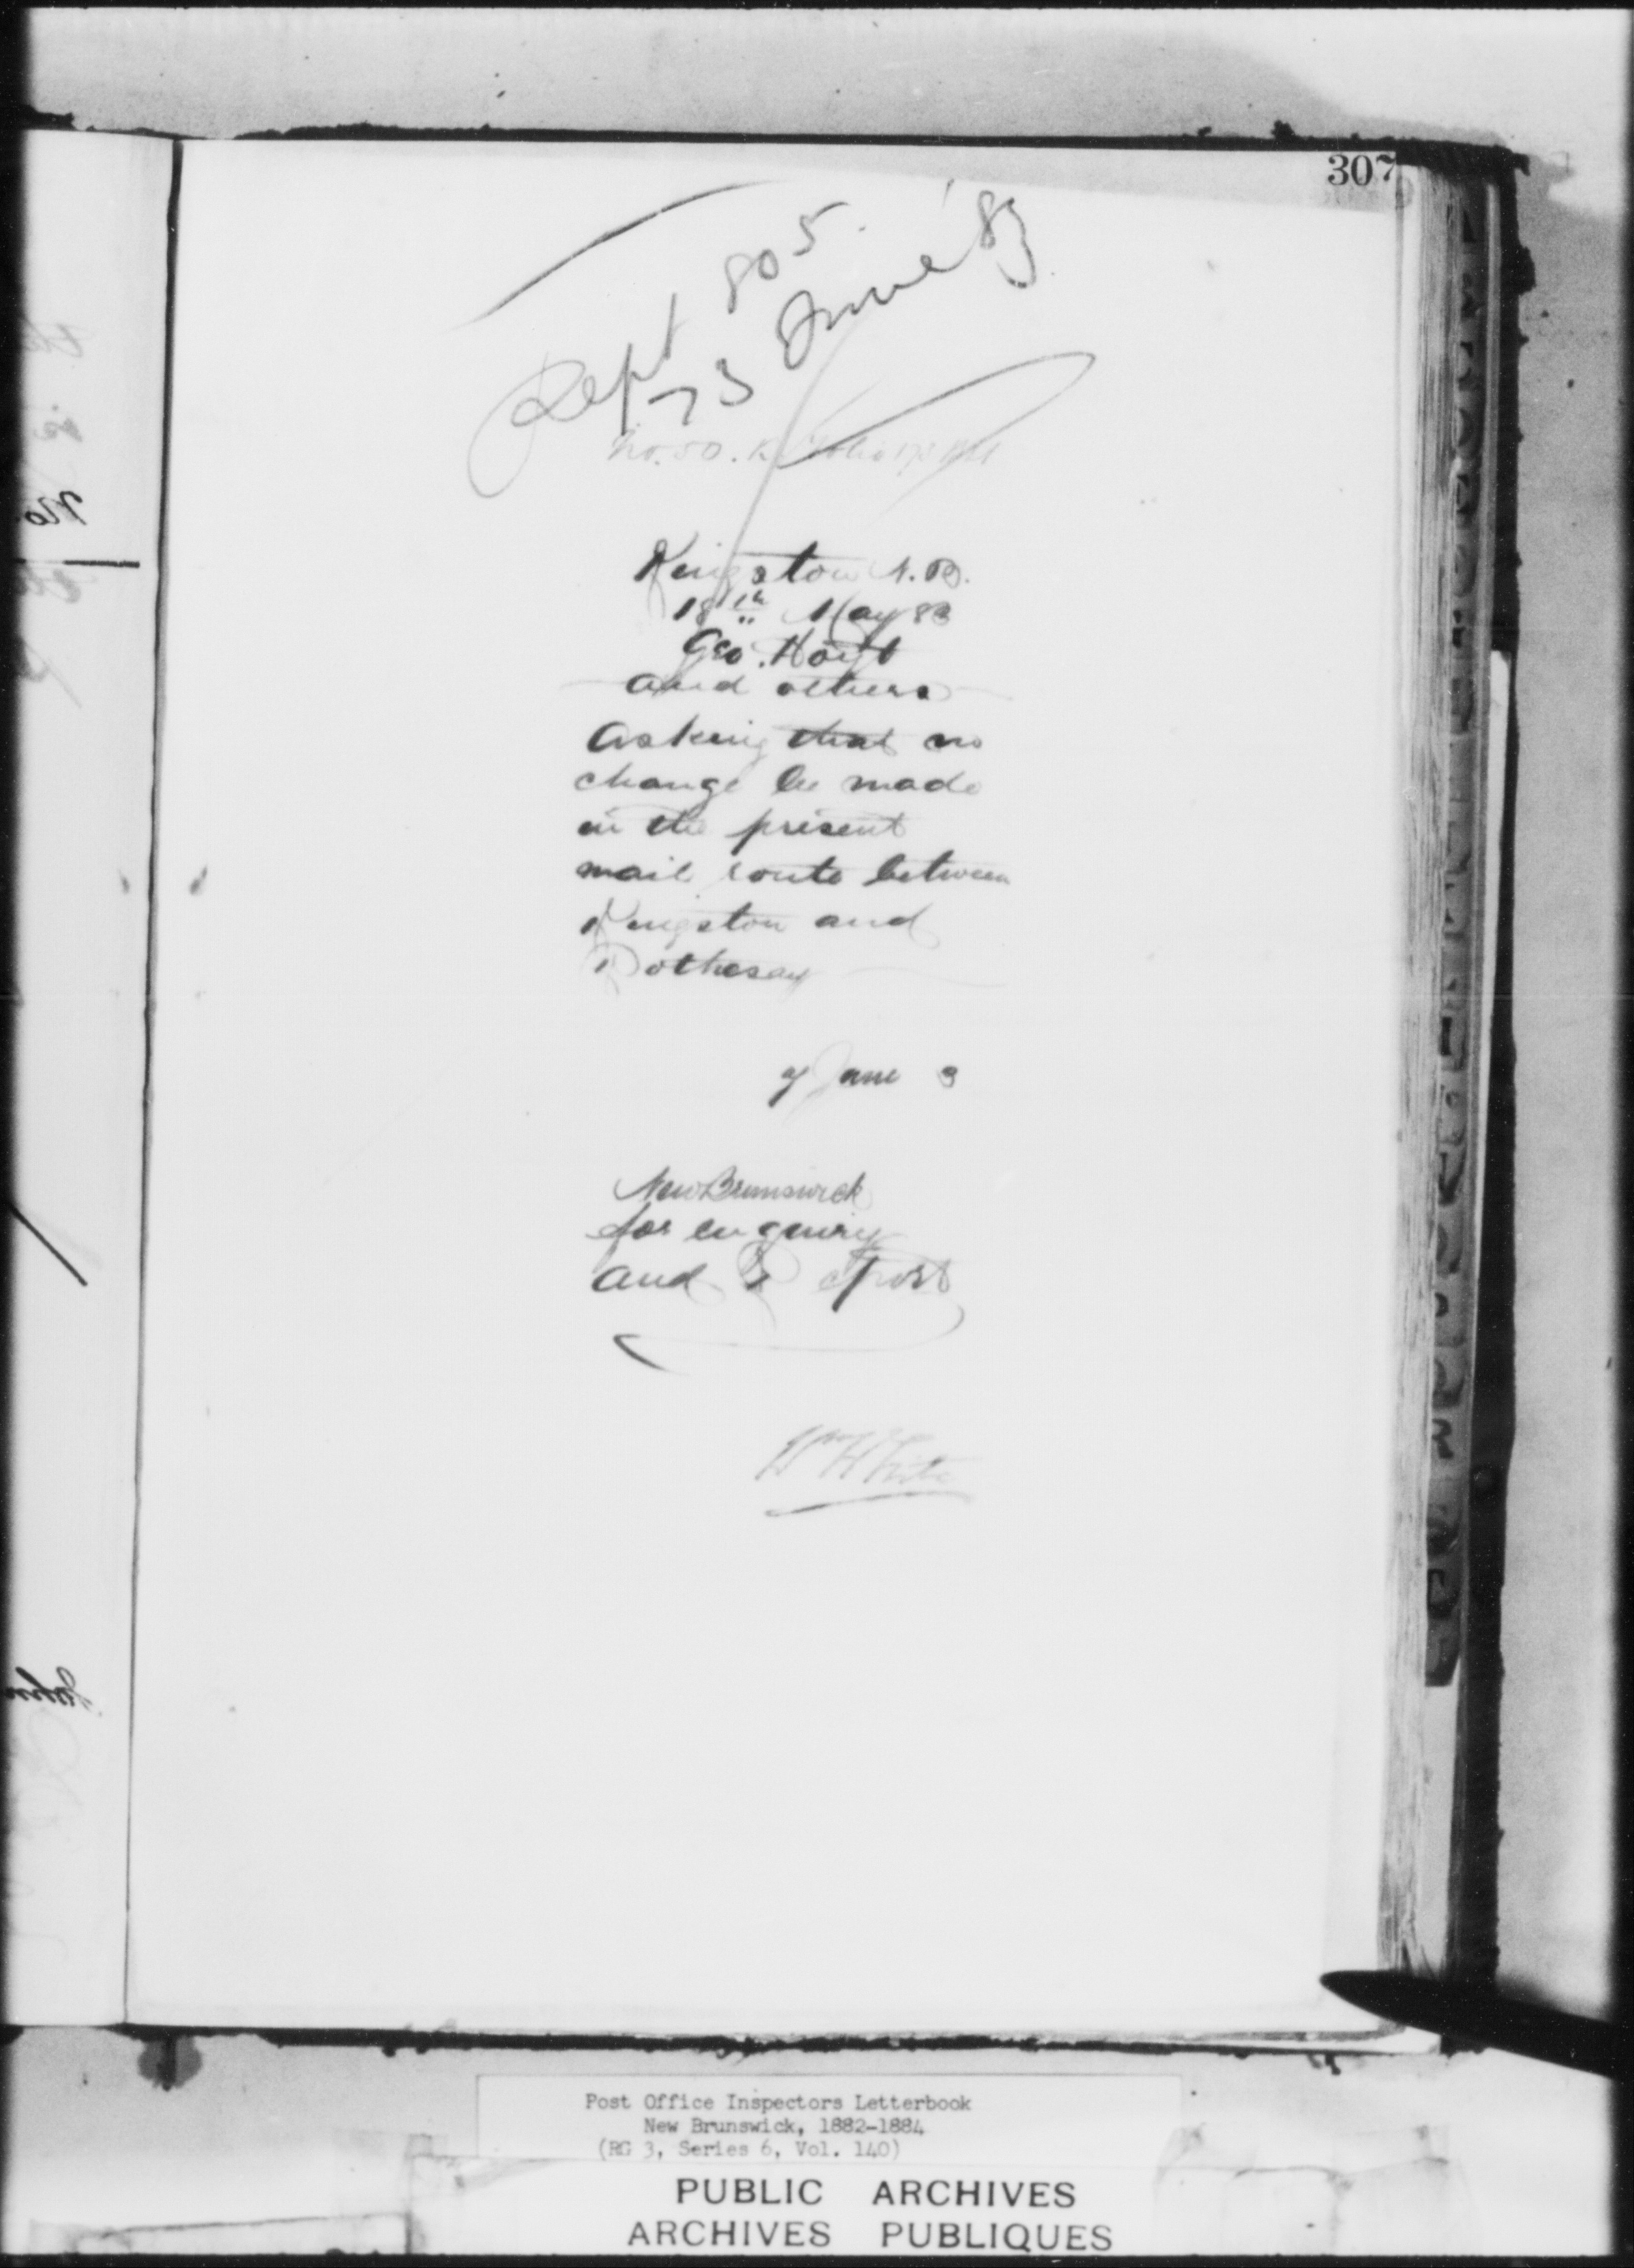 307
Rept 805.
23 June '83
No. 50. K
Kingston N.B.
18th May 83
Geo. Hoyt
and others
Asking that no
change be made
in the present
mail route between
Kingston and
Rothesay
7 June 3
New Brunswick
for enquiry
and Report
W White
No
John
Post Office Inspectors Letterbook
New Brunswick, 1882-1884
(RG 3, Series 6, Vol. 140)
PUBLIC ARCHIVES
ARCHIVES PUBLIQUES